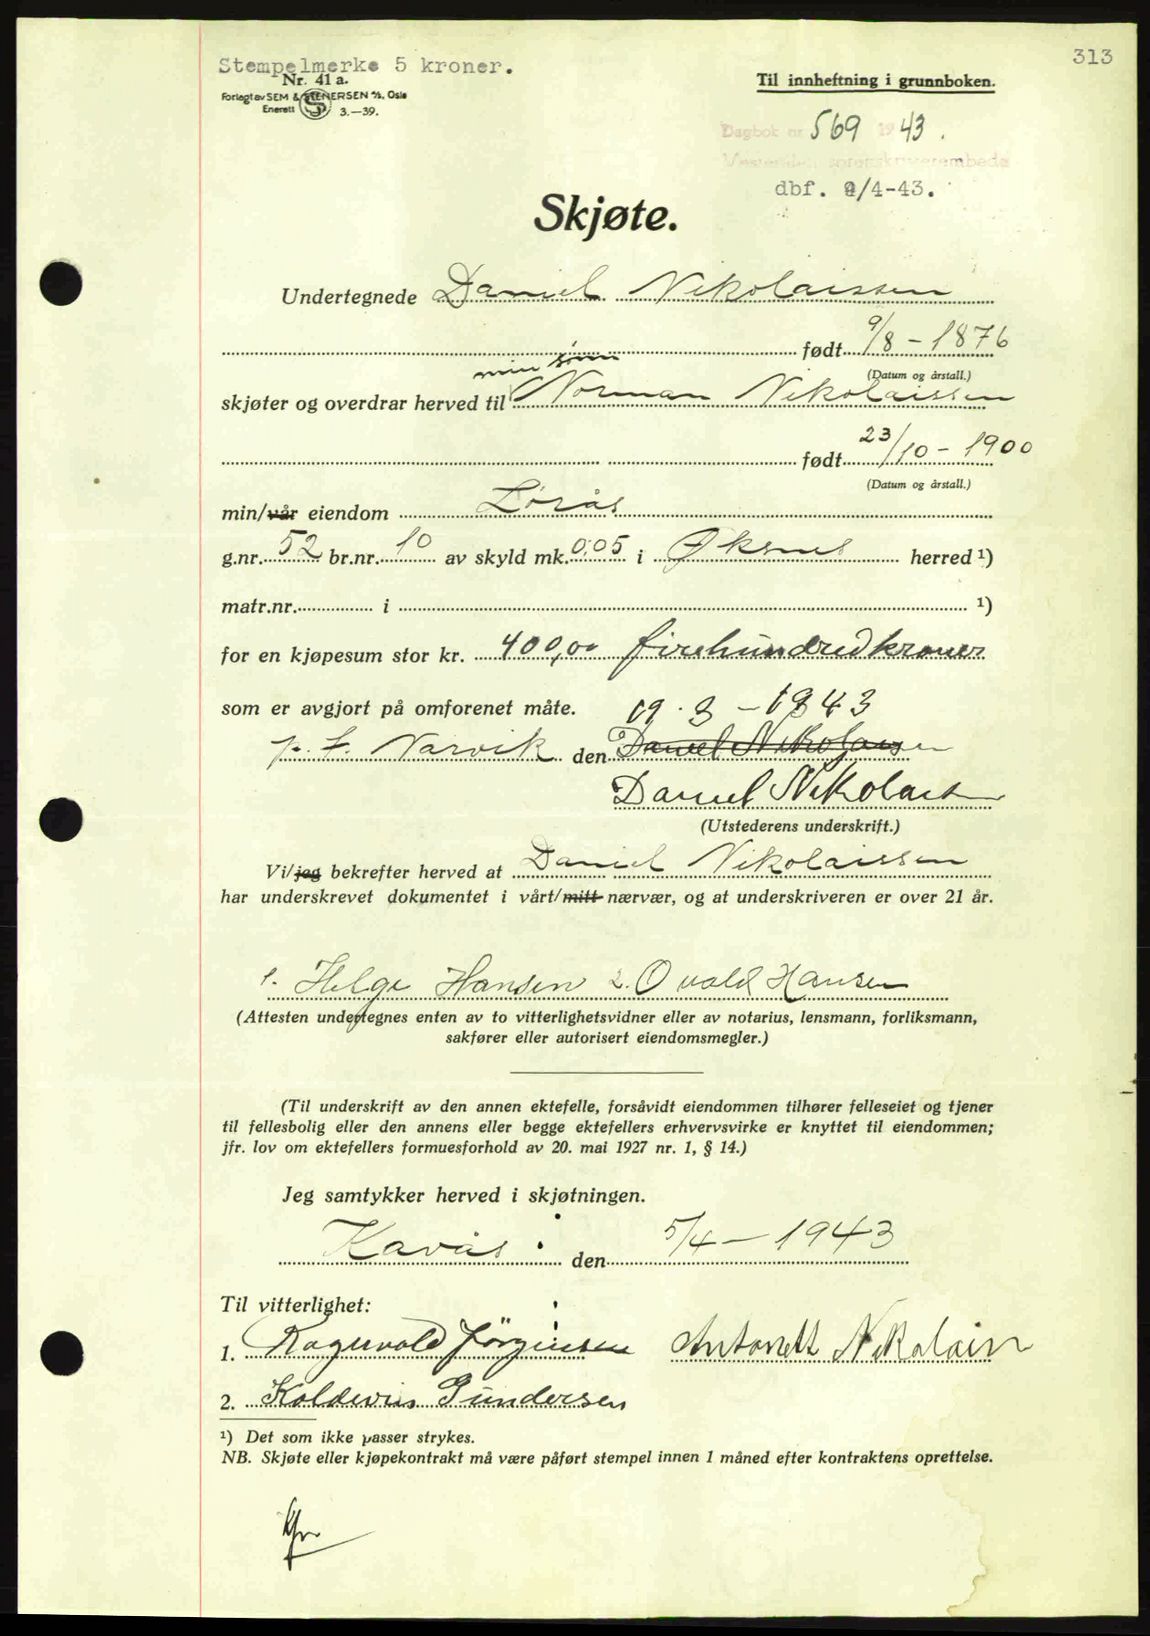 313
Stempelmerke 5 kroner.
Nr. 41 a.
Forlagt av SEM & STENERSEN A/S, Oslo
Enerett 3.—39.
Til innheftning i grunnboken.
Dagbok nr 569 1943.
Vesterålen sorenskriverembede
dbf. /4-43.
Skjøte.
Undertegnede Daniel Nikolaissen
født 9/8 - 1876
(Datum og årstall.)
min sønn
skjøter og overdrar herved til Norman Nikolaissen
født 23/10 - 1900
(Datum og årstall.)
min/vår eiendom Lørås
g.nr. 52 br.nr. 10 av skyld mk. 0,05 i Øksnes herred ¹)
matr.nr. i ¹)
for en kjøpesum stor kr. 400,00 firehundredkroner
som er avgjort på omforenet måte. 19.3 - 1943
p.t. Narvik den Daniel Nikolaissen
Daniel Nikolaisen
(Utstederens underskrift.)
Vi/jeg bekrefter herved at Daniel Nikolaissen
har underskrevet dokumentet i vårt/mitt nærvær, og at underskriveren er over 21 år.
1. Helge Hansen 2. Osvald Hansen
(Attesten undertegnes enten av to vitterlighetsvidner eller av notarius, lensmann, forliksmann,
sakfører eller autorisert eiendomsmegler.)
(Til underskrift av den annen ektefelle, forsåvidt eiendommen tilhører felleseiet og tjener
til fellesbolig eller den annens eller begge ektefellers erhvervsvirke er knyttet til eiendommen;
jfr. lov om ektefellers formuesforhold av 20. mai 1927 nr. 1, § 14.)
Jeg samtykker herved i skjøtningen.
Kavås den 5/4 - 1943
Til vitterlighet:
1. Ragnvald Jørgensen Antonett Nikolaisn
2. Koldevin Gundersen
¹) Det som ikke passer strykes.
NB. Skjøte eller kjøpekontrakt må være påført stempel innen 1 måned efter kontraktens oprettelse.